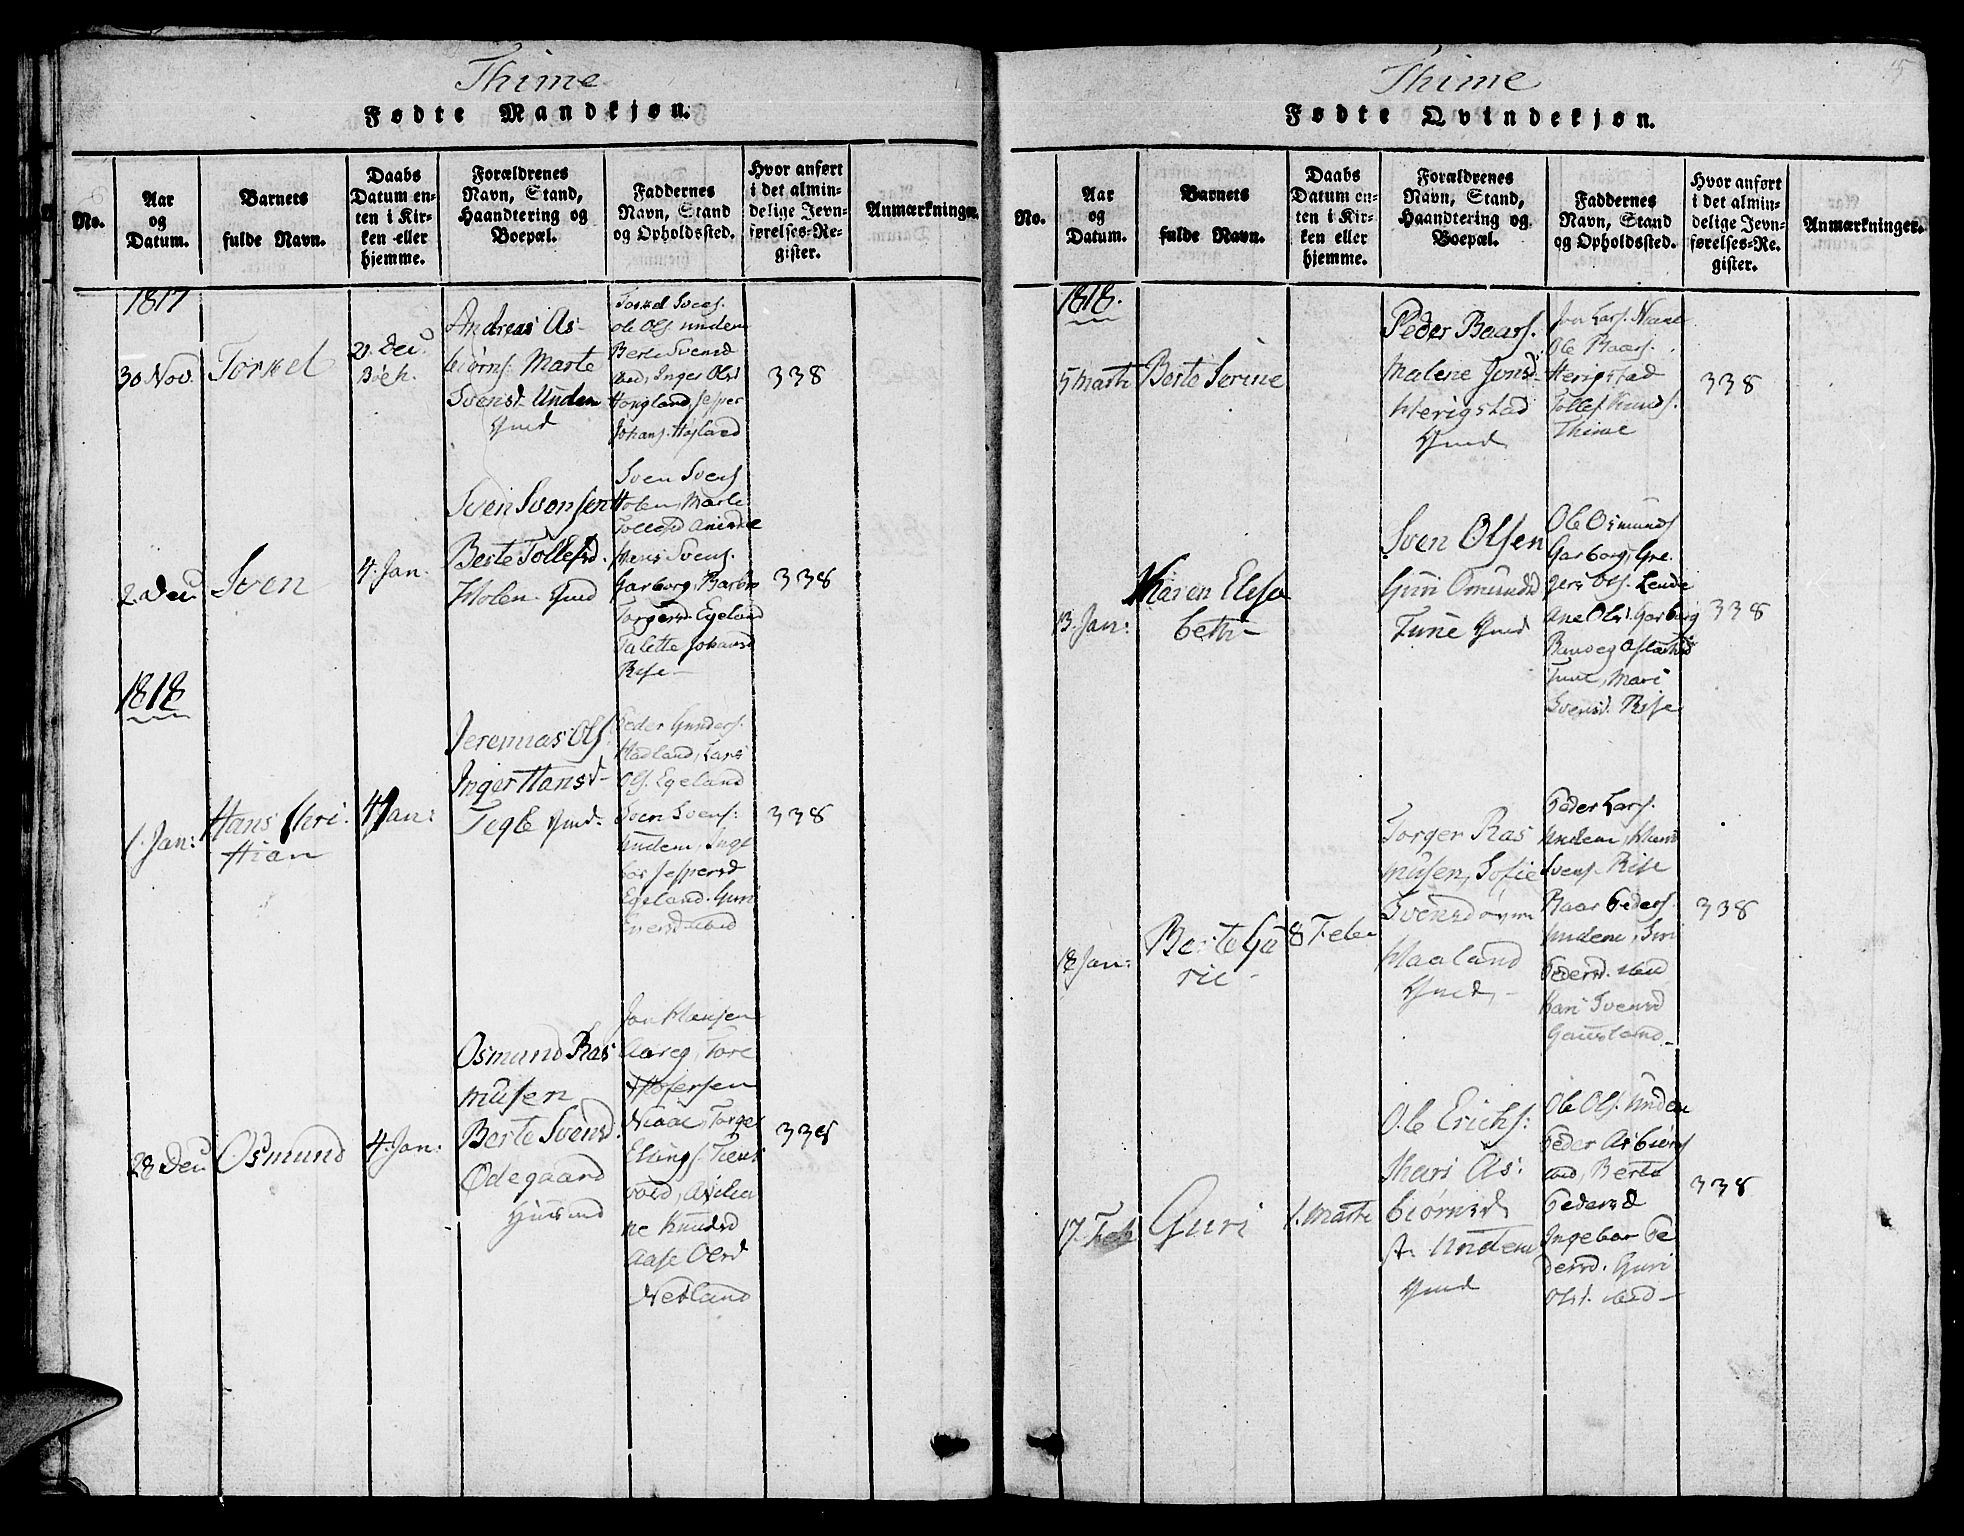 Thime
Fødte Mandkjøn.
No.
Aar
og
Datum.
Barnets
fulde Navn.
Daabs
Datum en-
ten i Kir-
ken eller
hjemme.
Forældrenes
Navn, Stand,
Haandtering og
Boepæl.
Faddernes
Navn, Stand
og Opholdssted.
Hvor anført
i det almin-
delige Jevn-
førelses-Re-
gister.
Anmærkninger.
1817
30 Nov.
Torkel
21. Dec.
Andreas As-
biørns. Marte
Svensd. Unden
Gmd
Torkel Svens.
Ole Ols. Undem
Berte Svensd
Inger Olsd
Hongland Jesper
Johans. Hogland
338
2. Dec
Sven
4. Jan.
Sven Svensen
Berte Tollefsd.
Holen Gmd
Sven Svens
Holen, Marte
Tollefsd
Hans Svens.
Garborg, Barbro
Torgersd. Egeland
Talette Johansd
Rise
338
1818
1. Jan:
Hans Chri
stian
4 Jan:
Jeremias Ols.
Inger Hansd
Tegle Gmd.
Peder Gunders.
Hadland, Lars
Ols. Egeland
Sven Svens:
Undem, Inge
bor Jespersd
Egeland. Guri
338
28 Dec
Osmund
4. Jan:
Osmund Ras
musen
Berte Svensd.
Ødegaard
Huusmd
Jon Hansen
Aareg, Tore
Torger
Elings.
ne Knudsd
Aase Olsd
Netland
338
Thime
15
Fødte Qvindekjøn.
No.
Aar
og
Datum.
Barnets
fulde Navn.
Daabs
Datum en-
ten i Kir-
ken eller
hjemme.
Forældrenes
Navn, Stand,
Haandtering og
Boepæl.
Faddernes
Navn, Stand
og Opholdssted.
Hvor anført
i det almin-
delige Jevn-
førelses-Re-
gister.
Anmærkninger.
1818.
5 Marti
Berte Serine
Peder Baars.
Malene Jonsd.
Herigstad
Gmd
Jon Lars. Njaae
Ole Baars.
Herigstad
Tollef Knuds.
Thime
338
13. Jan:
Karen Elisa
beth
Sven Olsen
Guri Omundsd
Tune Gmd
Ole Osmunds
Garborg, Gre
gers Ols. Lende
Ane Olsd. Garborg
Tune, Mari
Svensd. Rise
338
18 Jan:
Berte Gu
rie
8 Feb
Torger Ras
musen, Sofie
Svensd
Haaland
Gmd
Peder Lars.
Undem,
Svens. Rise
Baar Peders.
Undem, Siri
Pedersd.
Kari Svensd
Gausland
338
17. Feb
Guri
1. Marti
Ole Erichs:
Kari As:
biørnsd
Undem
Gmd
Ole Ols. Undem
Peder Asbiørns
Berte
Pedersd
Ingebor Pe
dersd. Guri
Olsd.
338